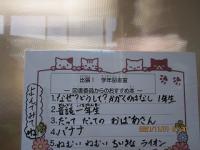 出張！ 学年図書室
図書委員からのおすすめ本
よんでみてね
1.なぜ?どうして?かがくのはなし 1年生
2.音読一年生
3.だって だっての おばあさん
4.バナナ
5.ねむい ねむい ちいさな ライオン